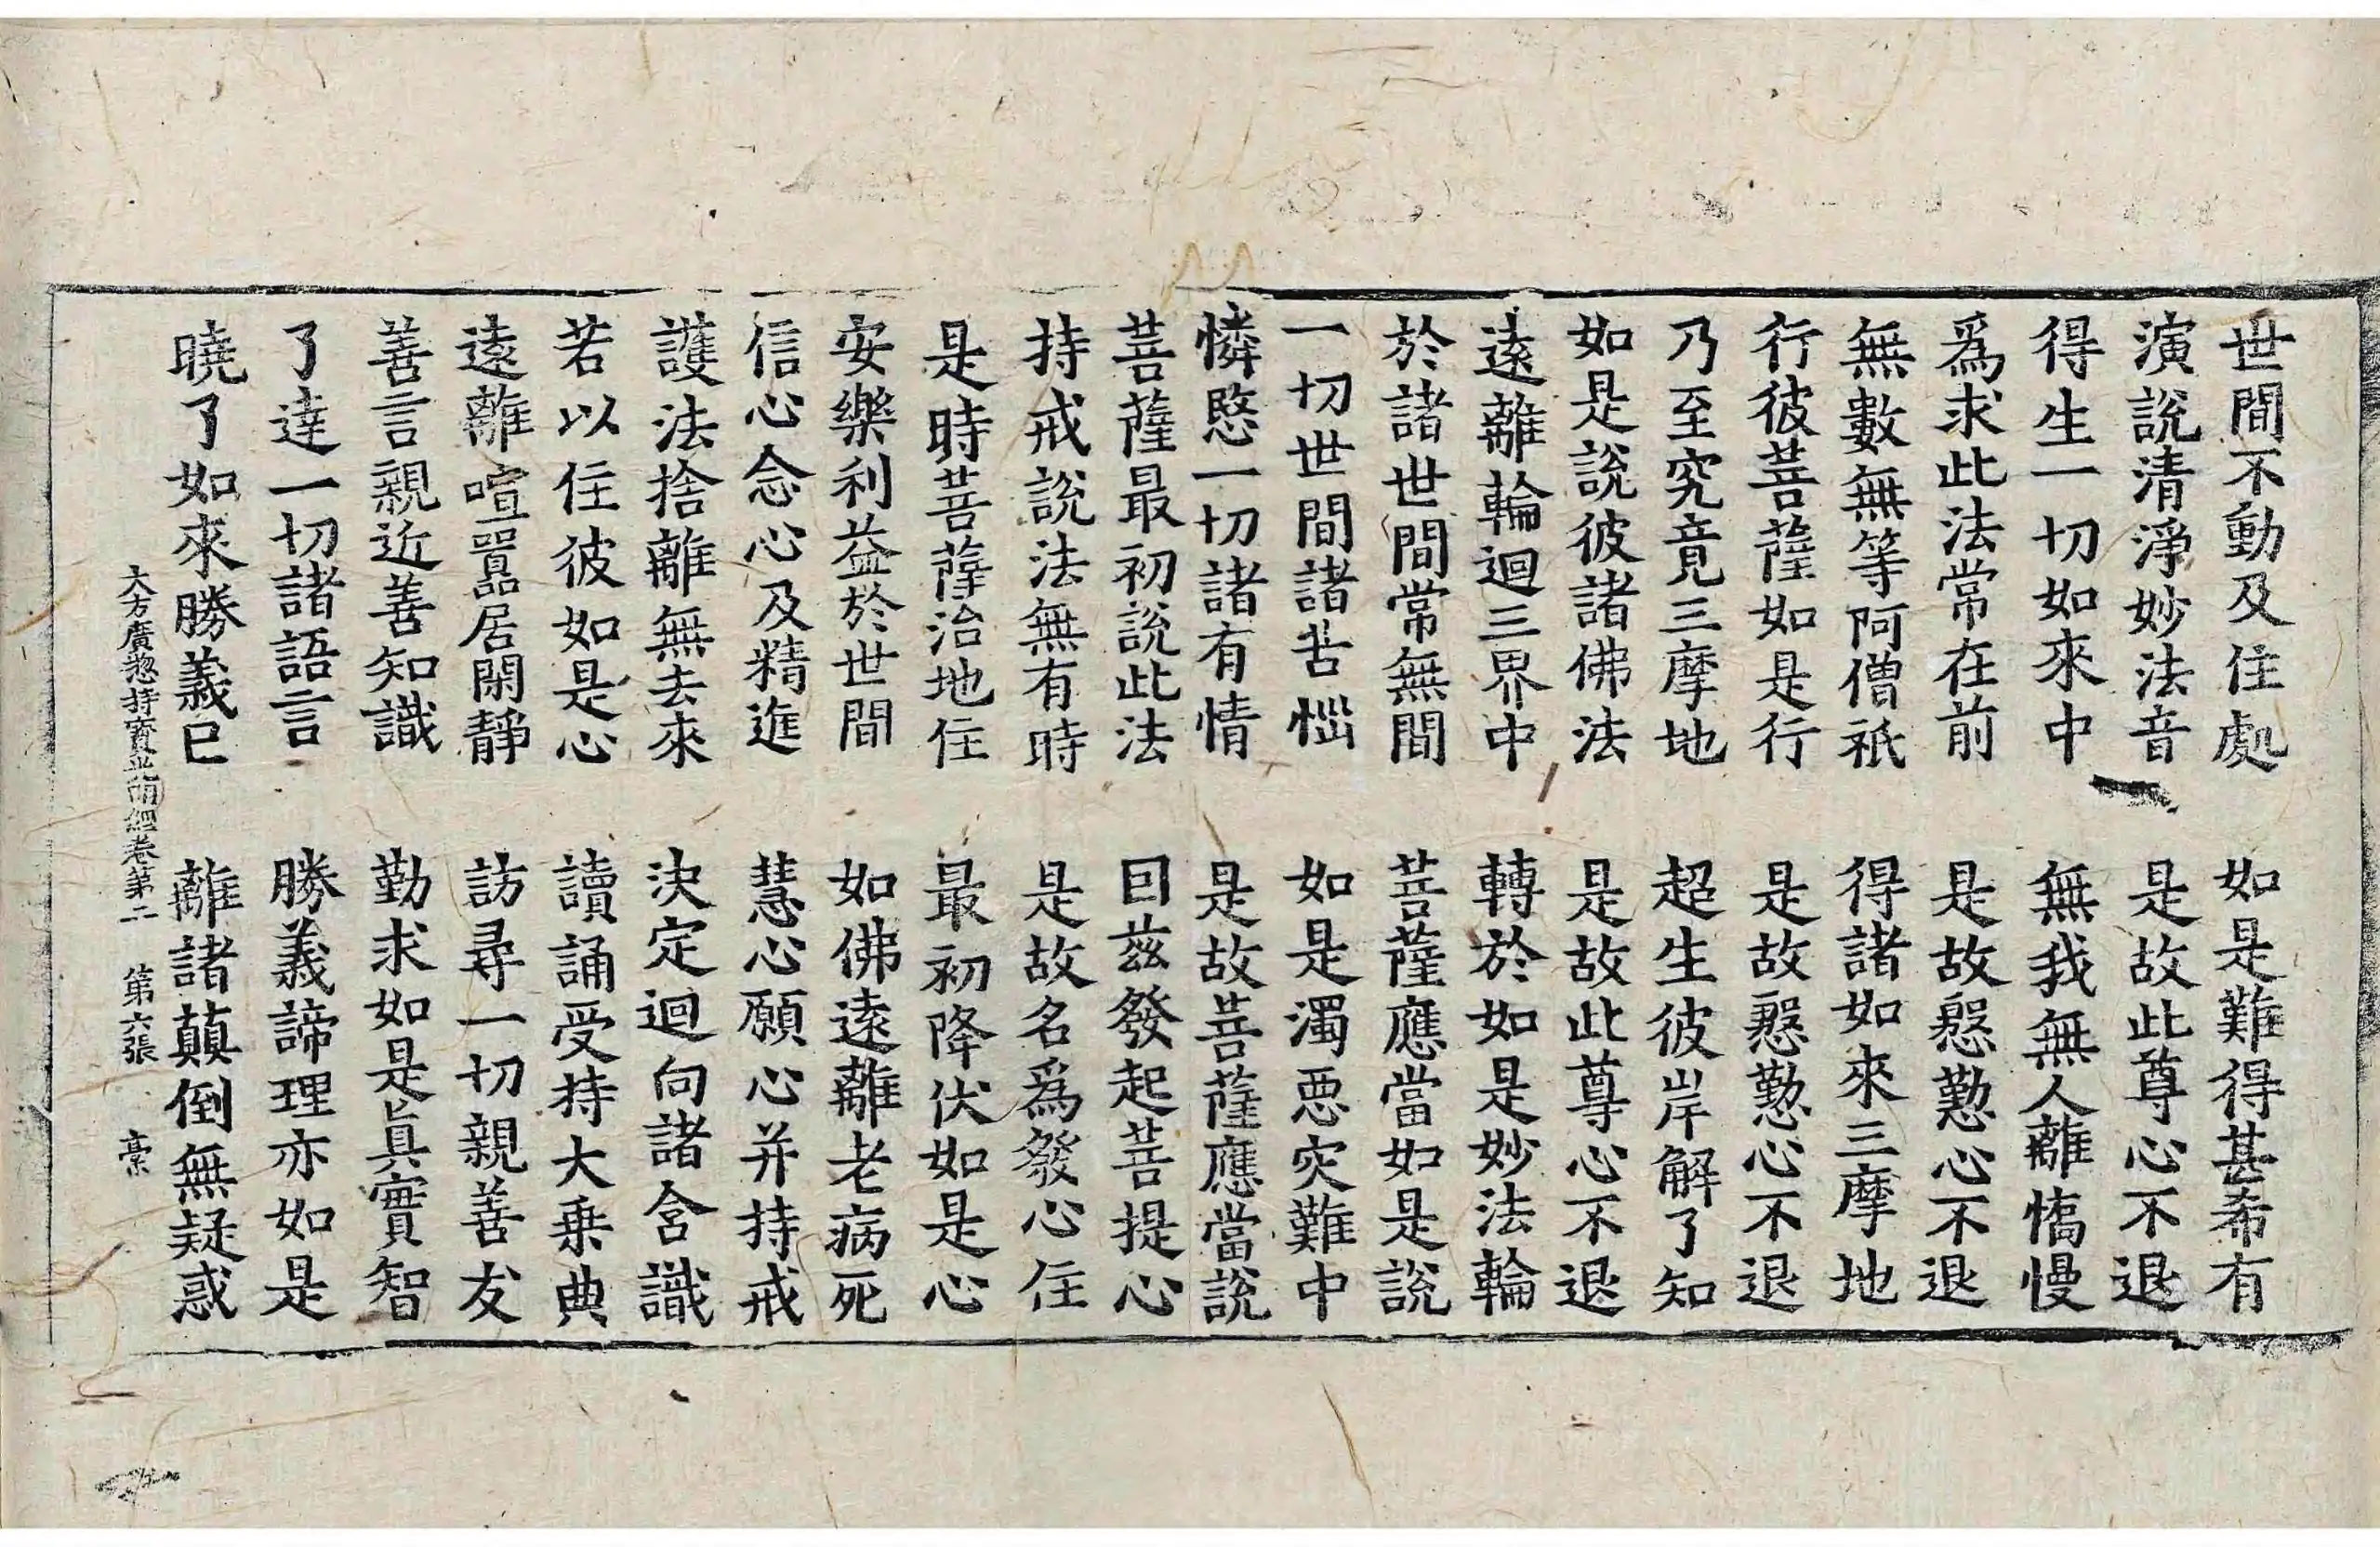 世間不動及住處　如是難得甚希有
演說清淨妙法音　是故此尊心不退
得生一切如來中　無我無人離憍慢
爲求此法常在前　是故慇懃心不退
無數無等阿僧祇　得諸如來三摩地
行彼菩薩如是行　是故慇懃心不退
乃至究竟三摩地　超生彼岸解了知
如是說彼諸佛法　是故此尊心不退
遠離輪迴三界中　轉於如是妙法輪
於諸世間常無間　菩薩應當如是說
一切世間諸苦惱　如是濁惡灾難中
憐愍一切諸有情　是故菩薩應當說
菩薩最初說此法　因茲發起菩提心
持戒說法無有時　是故名爲發心住
是時菩薩治地住　最初降伏如是心
安樂利益於世間　如佛遠離老病死
信心念心及精進　慧心願心并持戒
護法捨離無去來　決定迴向諸含識
若以住彼如是心　讀誦受持大乗典
遠離喧嚚居閑靜　訪尋一切親善友
善言親近善知識　勤求如是眞實智
了達一切諸語言　勝義諦理亦如是
曉了如來勝義已　離諸顚倒無疑惑
大方廣揔持寶光明經卷第二　第六張　槖